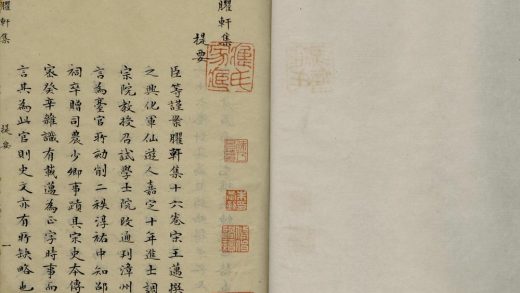 臞軒集
提要
臣等謹案臞軒集十六卷宋王邁撰
之興化軍仙遊人嘉定十年進士調
宗院教授召試學士院改通判漳州
言為臺官所劾削二秩淳祐中知邵
祠卒贈司農少卿事蹟具宋史本傳
密癸辛雜識有載邁為正字時事而
言其為此官則史文亦有所缺略也
臞軒集
提要
一